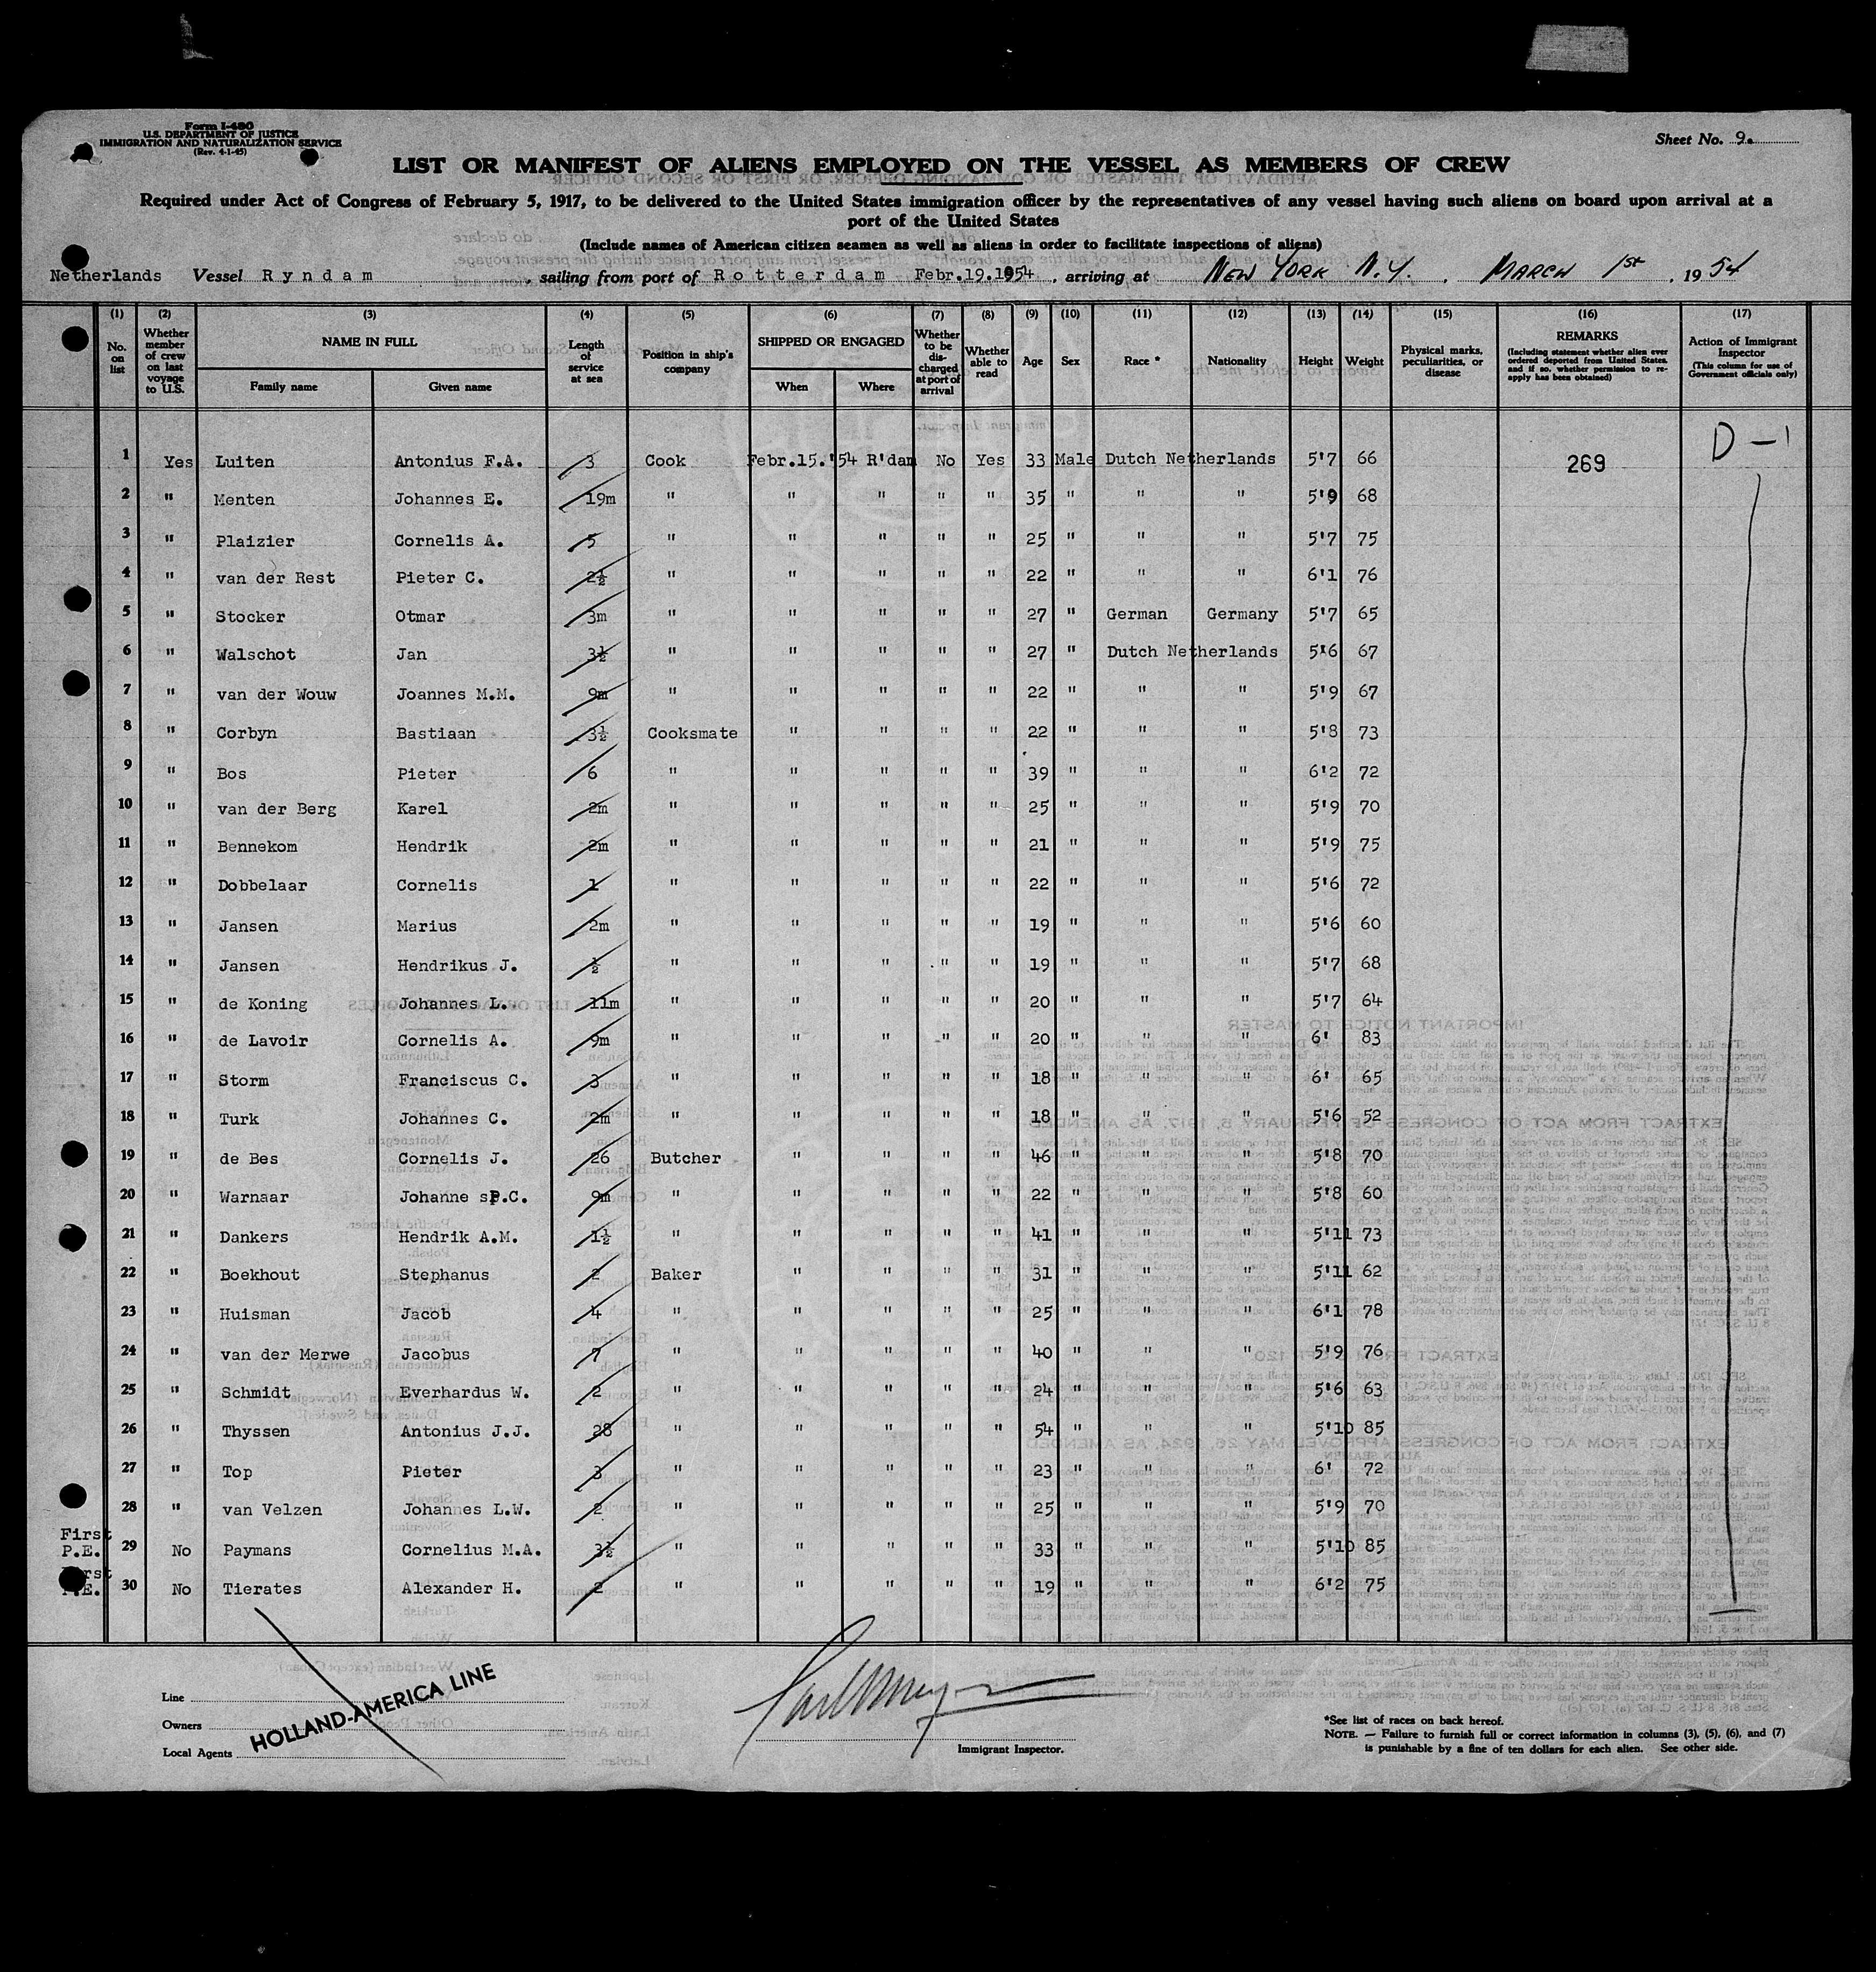 Form I-480
U.S. DEPARTMENT OF JUSTICE
IMMIGRATION AND NATURALIZATION SERVICE
(Rev. 4-1-45)
Sheet No. 9.
LIST OR MANIFEST OF ALIENS EMPLOYED ON THE VESSEL AS MEMBERS OF CREW
Required under Act of Congress of February 5, 1917, to be delivered to the United States immigration officer by the representatives of any vessel having such aliens on board upon arrival at a
port of the United States
(Include names of American citizen seamen as well as aliens in order to facilitate inspections of aliens)
Netherlands Vessel Ryndam, sailing from port of Rotterdam Febr.19.1954, arriving at NEW YORK N.Y., MARCH 1st, 1954
(1) (2) (3) (4) (5) (6) (7) (8) (9) (10) (11) (12) (13) (14) (15) (16) (17)
No. on list | Whether member of crew on last voyage to U.S. | NAME IN FULL | Family name | Given name | Length of service at sea | Position in ship's company | SHIPPED OR ENGAGED | When | Where | Whether to be discharged at port of arrival | Whether able to read | Age | Sex | Race * | Nationality | Height | Weight | Physical marks, peculiarities, or disease | REMARKS (Including statement whether alien ever ordered deported from United States, and if so, whether permission to reapply has been obtained) | Action of Immigrant Inspector (This column for use of Government officials only)
1 Yes Luiten Antonius F.A. 3 Cook Febr.15.'54 R'dam No Yes 33 Male Dutch Netherlands 5'7 66 269 D-1
2 " Menten Johannes E. 19m " " " " " 35 " " " 5'9 68
3 " Plaizier Cornelis A. 5 " " " " " 25 " " " 5'7 75
4 " van der Rest Pieter C. 2½ " " " " " 22 " " " 6'1 76
5 " Stocker Otmar 3m " " " " " 27 " German Germany 5'7 65
6 " Walschot Jan 3½ " " " " " 27 " Dutch Netherlands 5'6 67
7 " van der Wouw Joannes M.M. 9m " " " " " 22 " " " 5'9 67
8 " Corbyn Bastiaan 3½ Cooksmate " " " " 22 " " " 5'8 73
9 " Bos Pieter 6 " " " " " 39 " " " 6'2 72
10 " van der Berg Karel 2m " " " " " 25 " " " 5'9 70
11 " Bennekom Hendrik 2m " " " " " 21 " " " 5'9 75
12 " Dobbelaar Cornelis 1 " " " " " 22 " " " 5'6 72
13 " Jansen Marius 2m " " " " " 19 " " " 5'6 60
14 " Jansen Hendrikus J. ½ " " " " " 19 " " " 5'7 68
15 " de Koning Johannes L. 11m " " " " " 20 " " " 5'7 64
16 " de Lavoir Cornelis A. 9m " " " " " 20 " " " 6' 83
17 " Storm Franciscus C. 3 " " " " " 18 " " " 6' 65
18 " Turk Johannes C. 2m " " " " " 18 " " " 5'6 52
19 " de Bes Cornelis J. 26 Butcher " " " " 46 " " " 5'8 70
20 " Warnaar Johanne sP.C. 9m " " " " " 22 " " " 5'8 60
21 " Dankers Hendrik A.M. 1½ " " " " " 41 " " " 5'11 73
22 " Boekhout Stephanus 2 Baker " " " " 31 " " " 5'11 62
23 " Huisman Jacob 4 " " " " " 25 " " " 6'1 78
24 " van der Merwe Jacobus 7 " " " " " 40 " " " 5'9 76
25 " Schmidt Everhardus W. 2 " " " " " 24 " " " 5'6 63
26 " Thyssen Antonius J.J. 28 " " " " " 54 " " " 5'10 85
27 " Top Pieter 3 " " " " " 23 " " " 6' 72
28 " van Velzen Johannes L.W. 2 " " " " " 25 " " " 5'9 70
First P.E. 29 No Paymans Cornelius M.A. 3½ " " " " " 33 " " " 5'10 85
30 No Tierates Alexander H. 2 " " " " " 19 " " " 6'2 75
Line
Owners
Local Agents
HOLLAND-AMERICA LINE
Immigrant Inspector.
*See list of races on back hereof.
NOTE. — Failure to furnish full or correct information in columns (3), (5), (6), and (7)
is punishable by a fine of ten dollars for each alien. See other side.